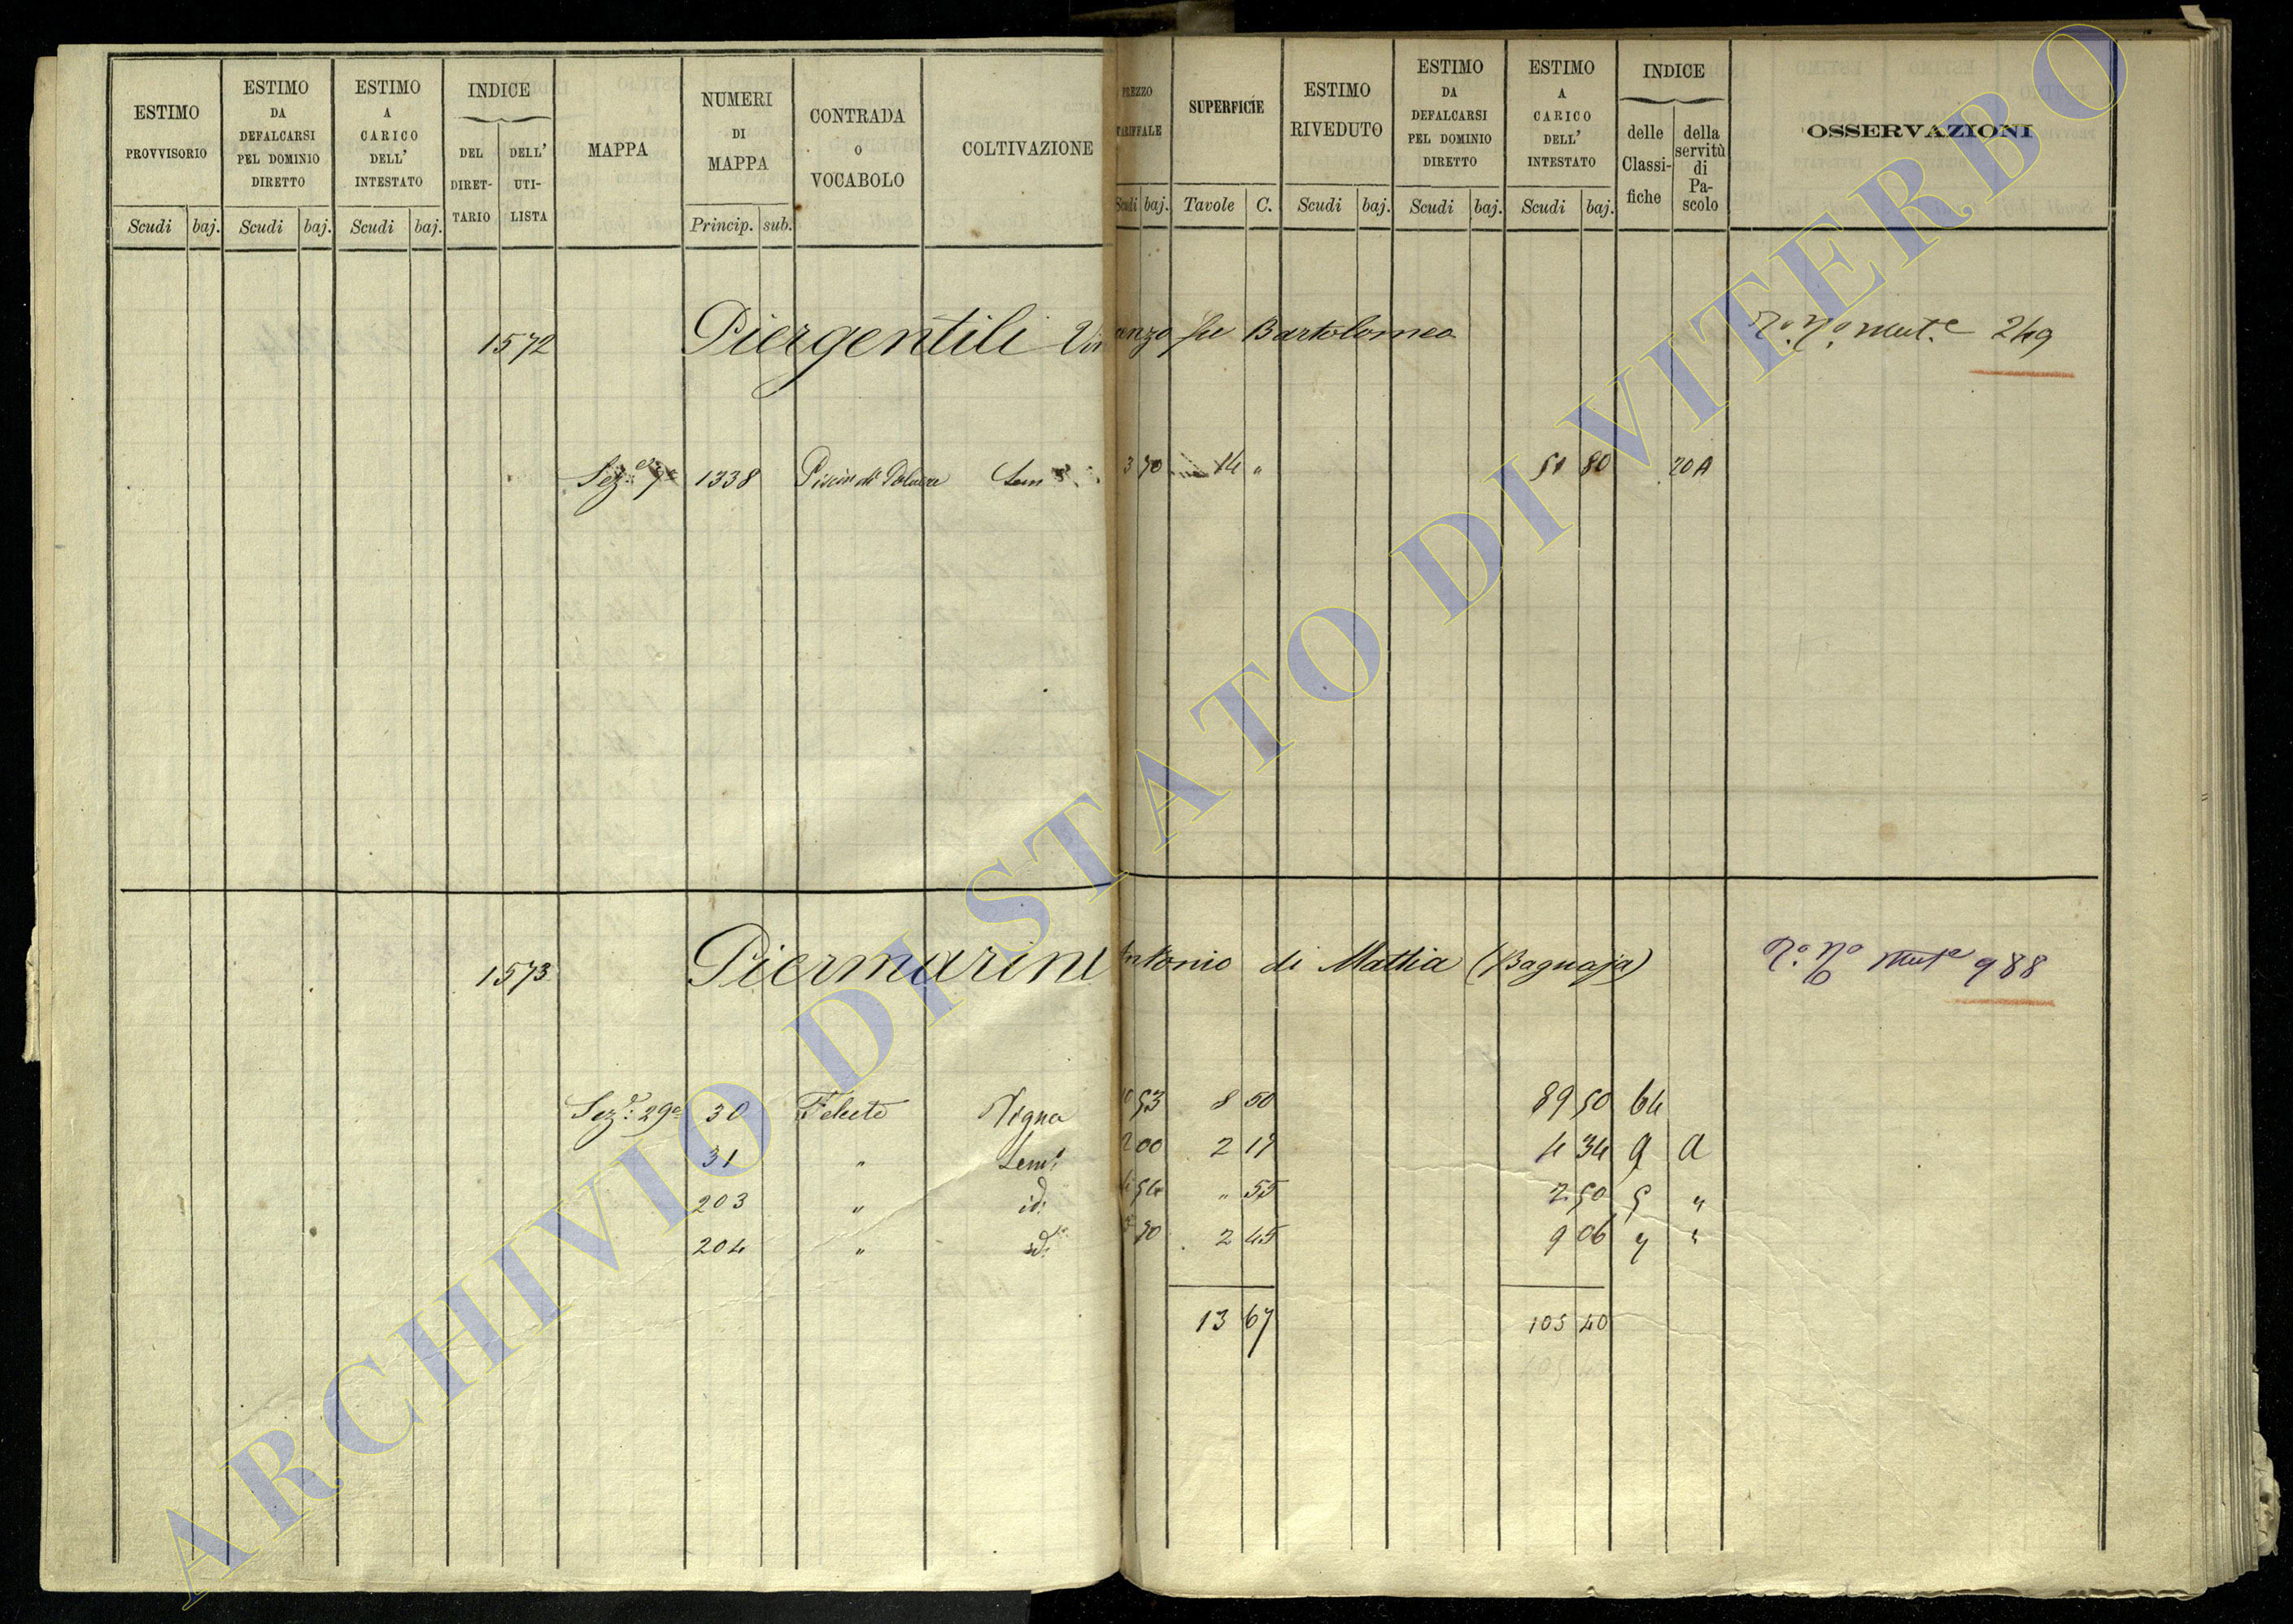 ESTIMO PROVVISORIO
Scudi baj.
ESTIMO DA DEFALCARSI PEL DOMINIO DIRETTO
Scudi baj.
ESTIMO A CARICO DELL' INTESTATO
Scudi baj.
INDICE
DEL DIRET-TARIO
DELL' UTI-LISTA
MAPPA
NUMERI DI MAPPA
Princip. sub.
CONTRADA O VOCABOLO
COLTIVAZIONE
PREZZO TARIFFALE
Scudi baj.
SUPERFICIE
Tavole C.
ESTIMO RIVEDUTO
Scudi baj.
ESTIMO DA DEFALCARSI PEL DOMINIO DIRETTO
Scudi baj.
ESTIMO A CARICO DELL' INTESTATO
Scudi baj.
INDICE
delle Classi-fiche
della servitù di Pa-scolo
OSSERVAZIONI
1572 Piergentili Vin enzo fu Bartolomeo Mut.e 249
Sez.e 1338 di Sem 3 70 14 " 51 80 20 A
1573 Piermarini Antonio di Mattia (Bagnaja) Mut.e 988
Sez.e 29a 30 Feleeto Vigna 53 8 50 89 50 64
31 " Sem.o 2 00 2 17 4 34 9 A
203 " id. 4 54 " 55 2 50 5 "
204 " id. 3 70 2 45 9 06 7 "
13 67 105 40
ARCHIVIO DI STATO DI VITERBO